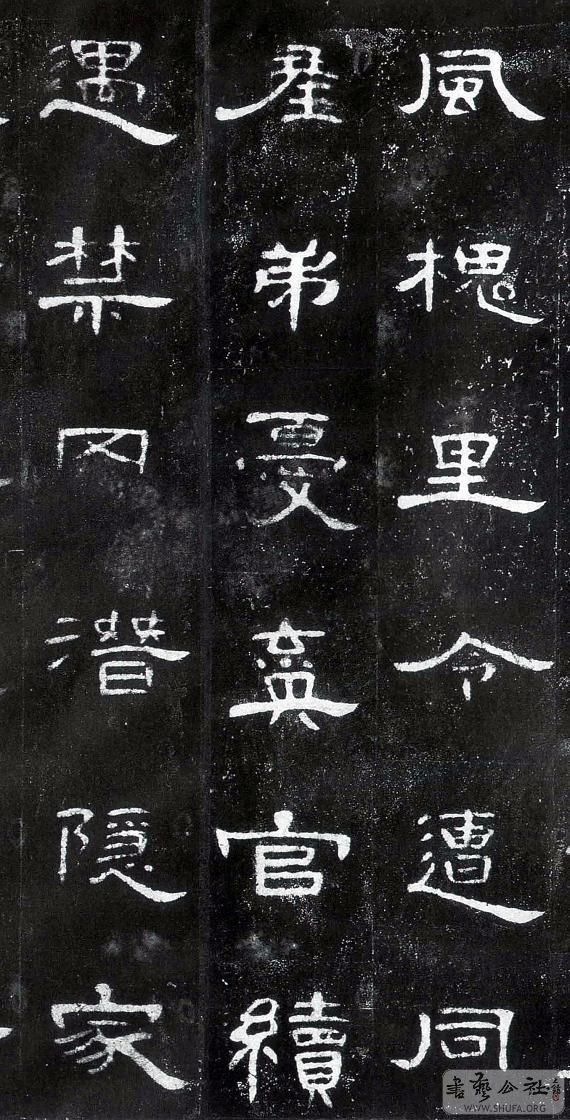 風槐里令遭同
産弟憂棄官續
遇禁冈潛隱家
書藝公社
WWW.SHUFA.ORG